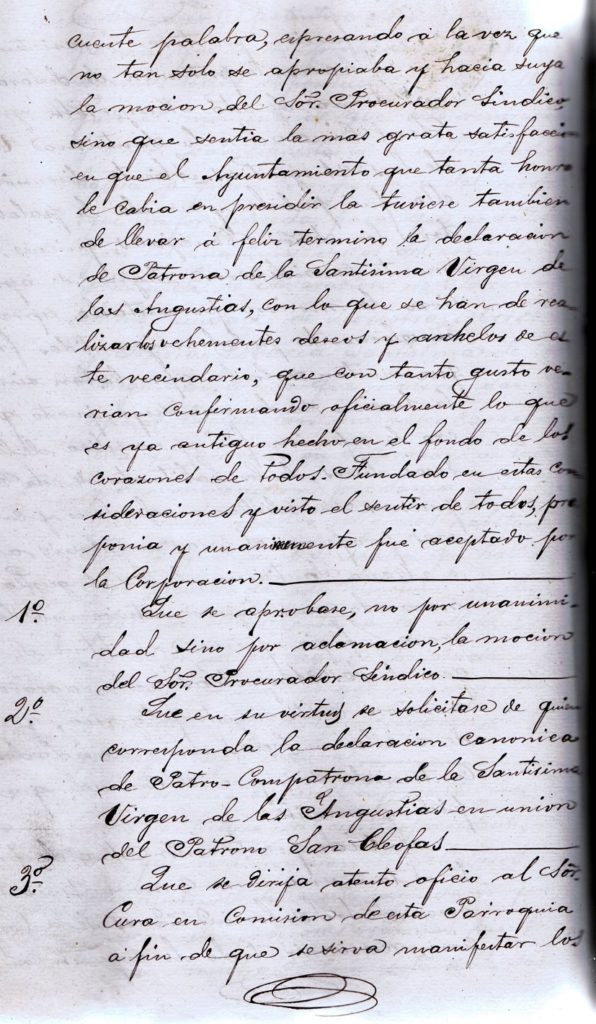 cuente palabra, espresando á la vez que
no tan sólo se apropiaba y hacia suya
la mocion del Sor. Procurador Sindico,
sino que sentia la mas grata satisfaccion
en que el Ayuntamiento que tanta honra
le cabia en presidir la tuviese tambien
de llevar á feliz termino la declaracion
de Patrona de la Santisima Virgen de
las Angustias, con lo que se han de rea-
lizar los vehementes deseos y anhelos de es
te vecindario, que con tanto gusto ve-
rian confirmando oficialmente lo que
es ya antiguo hecho en el fondo de los
corazones de todos. Fundado en estas con
sideraciones y visto el sentir de todos, pro
ponia y unanimemente fué aceptado por
la Corporacion.
1º. Que se aprobase, no por unanimi-
dad sino por aclamacion, la mocion
del Sor. Procurador Sindico.
2º. Que en su virtud se solicitase de quien
corresponda la declaracion canonica
de Patro-Compatrona de la Santisima
Virgen de las Angustias en union
del Patrono San Cleofas
3º. Que se dirija atento oficio al Sor.
Cura en Comision de esta Parroquia
á fin de que se sirva manifestar los